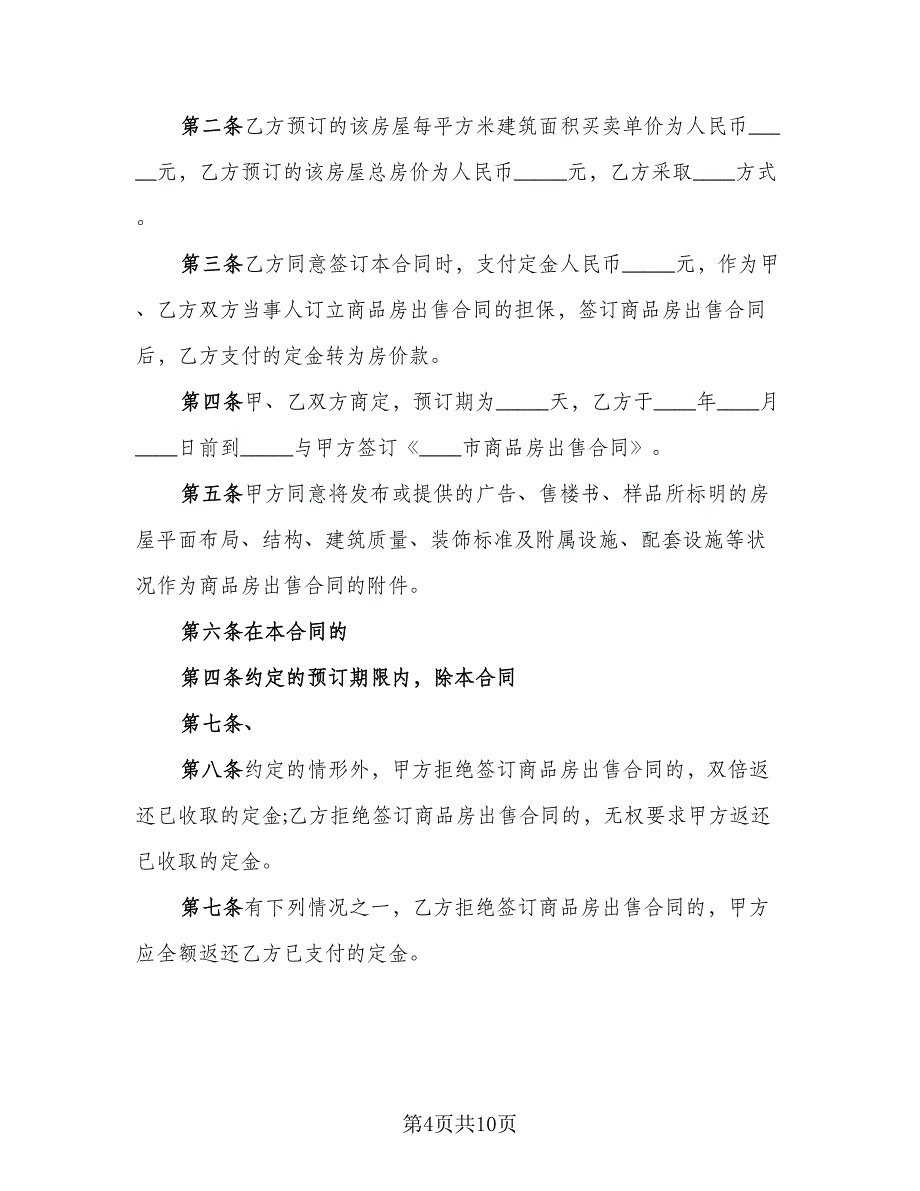 第二条乙方预订的该房屋每平方米建筑面积买卖单价为人民币___
__元，乙方预订的该房屋总房价为人民币_____元，乙方采取____方式
。
第三条乙方同意签订本合同时，支付定金人民币_____元，作为甲
、乙方双方当事人订立商品房出售合同的担保，签订商品房出售合同
后，乙方支付的定金转为房价款。
第四条甲、乙双方商定，预订期为_____天，乙方于____年____月
____日前到_____与甲方签订《____市商品房出售合同》。
第五条甲方同意将发布或提供的广告、售楼书、样品所标明的房
屋平面布局、结构、建筑质量、装饰标准及附属设施、配套设施等状
况作为商品房出售合同的附件。
第六条在本合同的
第四条约定的预订期限内，除本合同
第七条、
第八条约定的情形外，甲方拒绝签订商品房出售合同的，双倍返
还已收取的定金;乙方拒绝签订商品房出售合同的，无权要求甲方返还
已收取的定金。
第七条有下列情况之一，乙方拒绝签订商品房出售合同的，甲方
应全额返还乙方已支付的定金。
第4页共10页